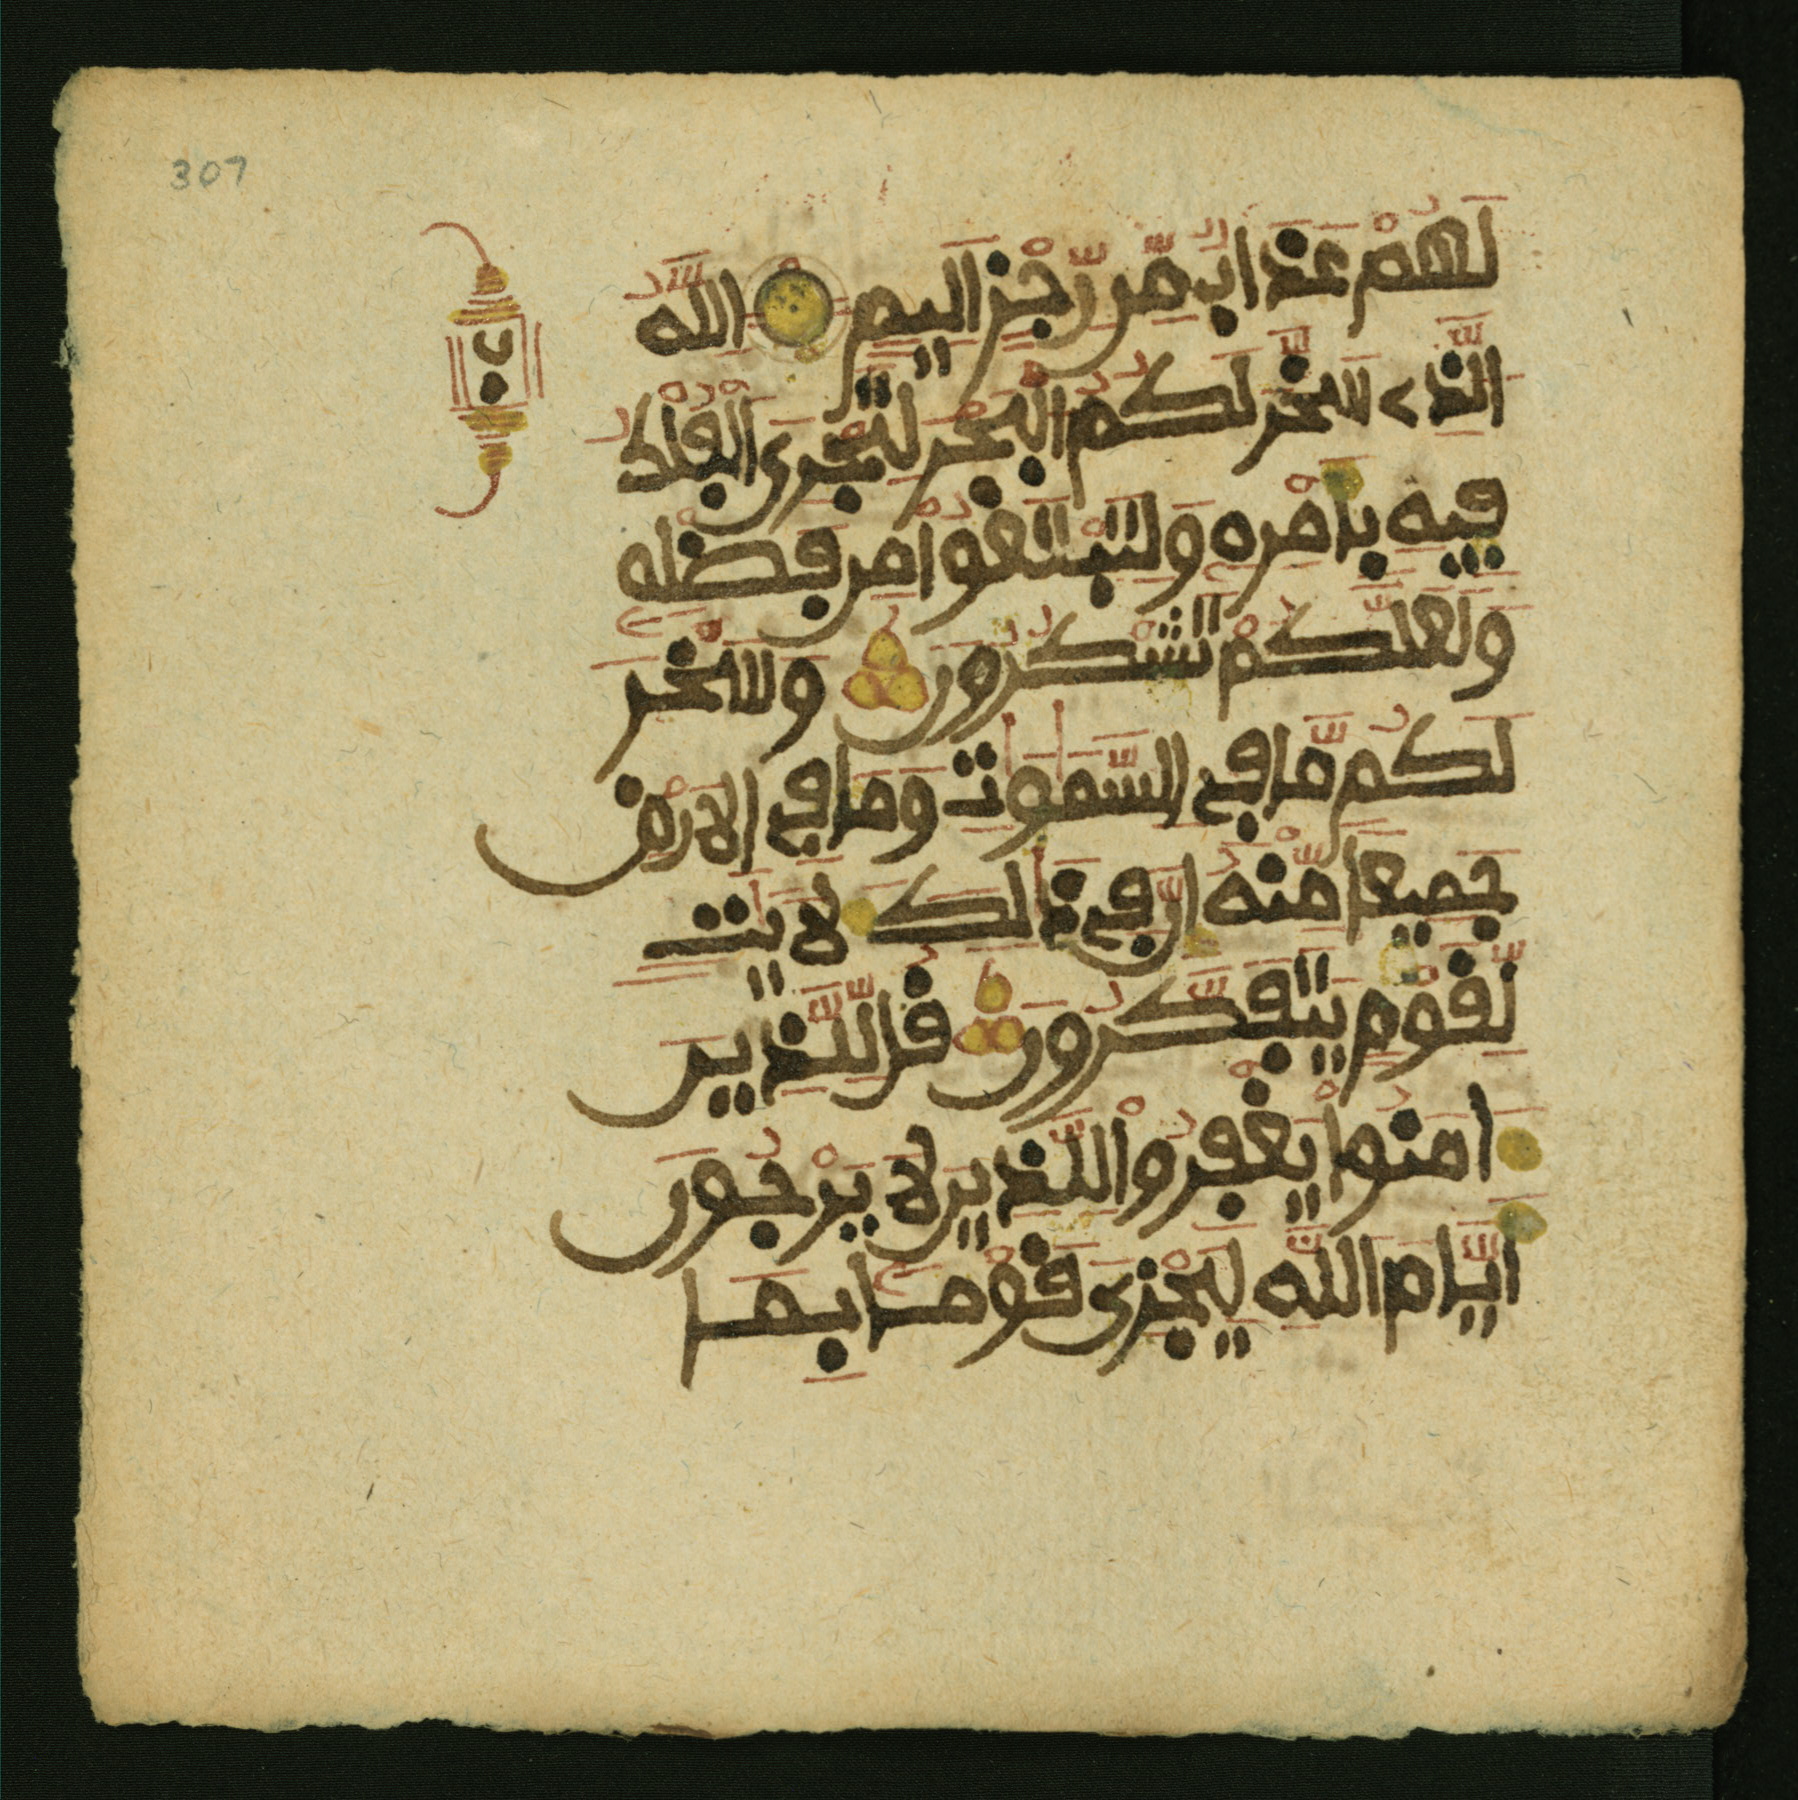 307
لَهُمْ عَذَابٌ مِّن رِّجْزٍ اَلِيمٍ اللَّهُ
الذِي سَخَّرَ لَكُمُ الْبَحْرَ لِتَجْرِيَ الْفُلْكُ
فِيهِ بِأَمْرِهِ وَلِتَبْتَغُوا مِن فَضْلِهِ
وَلَعَلَّكُمْ تَشْكُرُونَ وَسَخَّرَ
لَكُم مَّا فِي السَّمَٰوَٰتِ وَمَا فِي الَارْضِ
جَمِيعًا مِّنْهُ إِنَّ فِي ذَٰلِكَ لَأيَٰتٍ
لِّقَوْمٍ يَتَفَكَّرُونَ قُل لِّلَّذِينَ
ءَامَنُوا يَغْفِرُوا لِلَّذِينَ لَا يَرْجُونَ
أَيَّامَ اللَّهِ لِيَجْزِيَ قَوْمًا بِمَا